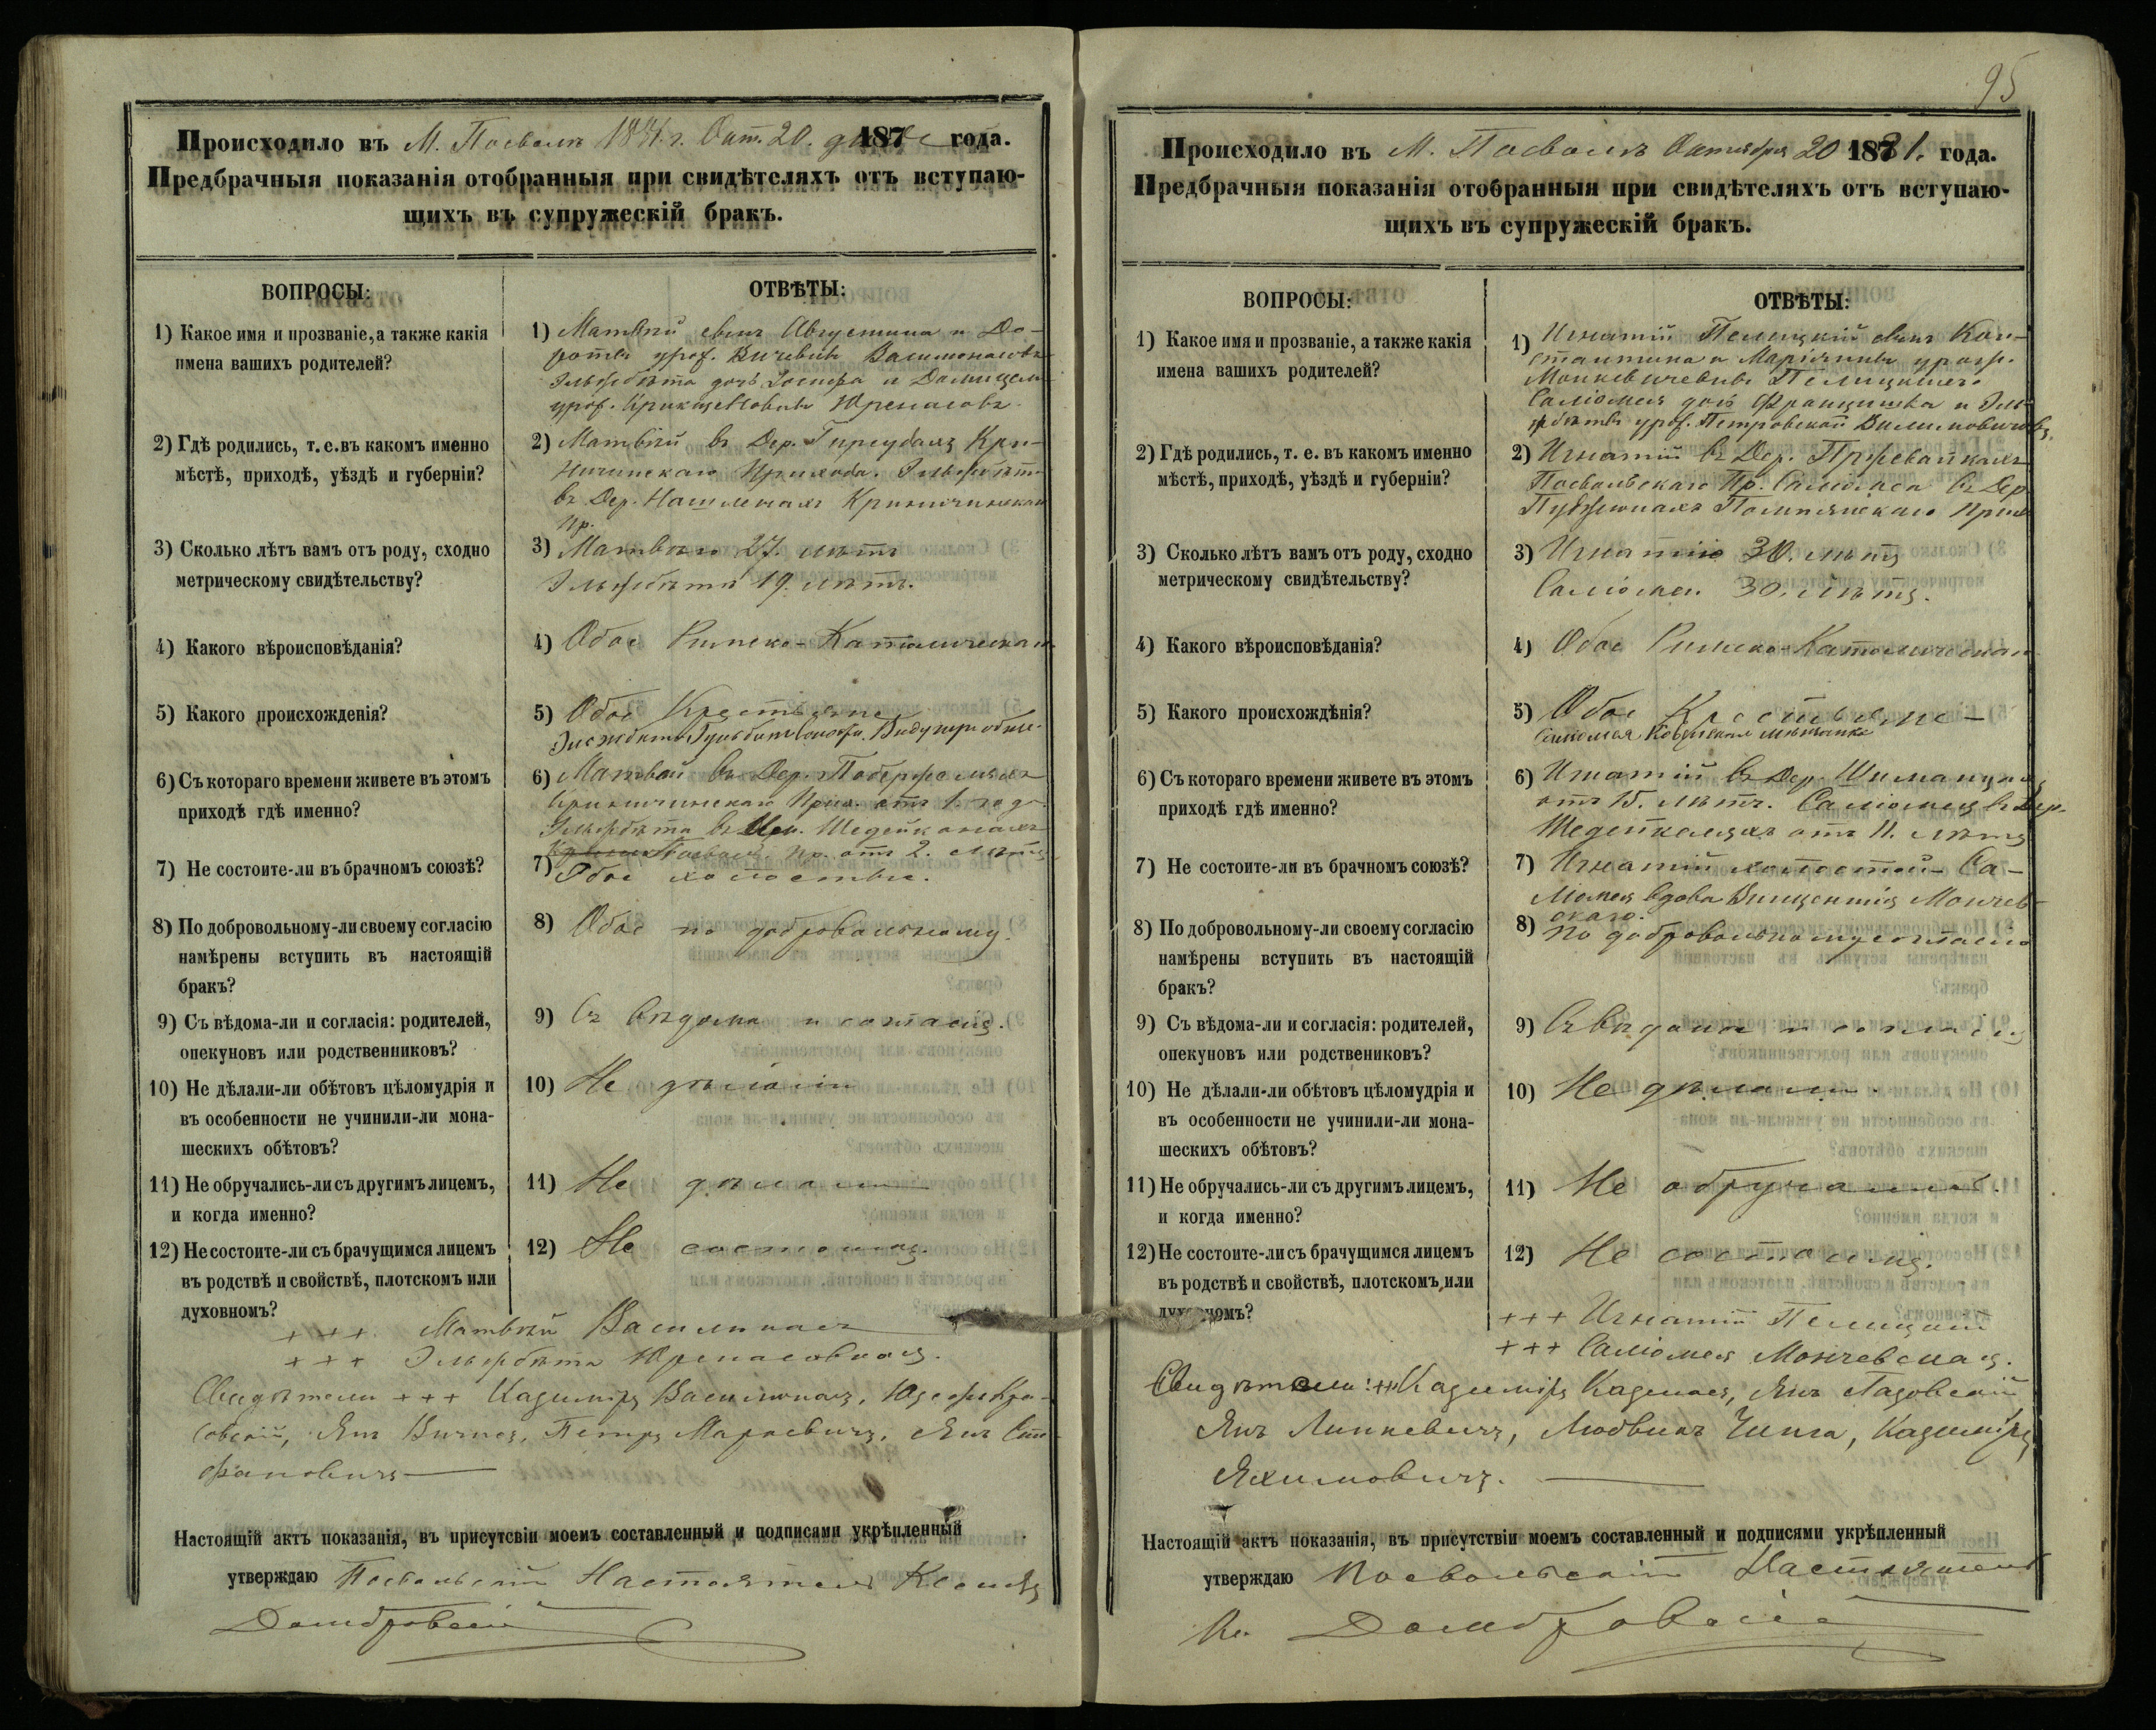 Происходило въ М. Посволѣ 1881 г. Окт. 20. дня 187 года.
Предбрачныя показанія отобранныя при свидѣтеляхъ отъ вступаю-
щихъ въ супружескій бракъ.
ВОПРОСЫ:
ОТВѢТЫ:
1) Какое имя и прозваніе, а также какія
имена вашихъ родителей?
1) Матвѣй сынъ Августина и До-
роты урож.
Эльжбѣта дочь Іосифа и
урож.
2) Гдѣ родились, т. е. въ какомъ именно
мѣстѣ, приходѣ, уѣздѣ и губерніи?
2) Матвѣй въ Дер. Кри-
ничинскаго Прихода. Эльжбѣта
въ Дер. Криничинскаго
Пр.
3) Сколько лѣтъ вамъ отъ роду, сходно
метрическому свидѣтельству?
3) Матвѣю 27. лѣтъ
Эльжбѣта 19. лѣтъ.
4) Какого вѣроисповѣданія?
4) Обое Римско-Католическаго
5) Какого происхожденія?
5) Обое Крестьяне
Эльжбѣта
6) Съ котораго времени живете въ этомъ
приходѣ гдѣ именно?
6) Матвѣй въ Дер.
Криничинскаго Прих. отъ 1. года
Эльжбѣта въ Шедейконяхъ
Посвол. Пр. отъ 2. лѣтъ
7) Не состоите-ли въ брачномъ союзѣ?
7) Обое холостые.
8) По добровольному-ли своему согласію
намѣрены вступить въ настоящій
бракъ?
8) Обое по добровольному.
9) Съ вѣдома-ли и согласія: родителей,
опекуновъ или родственниковъ?
9) Съ вѣдома и согласія.
10) Не дѣлали-ли обѣтовъ цѣломудрія и
въ особенности не учинили-ли мона-
шескихъ обѣтовъ?
10) Не дѣлали
11) Не обручались-ли съ другимъ лицемъ,
и когда именно?
11) Не дѣлали
12) Не состоите-ли съ брачущимся лицемъ
въ родствѣ и свойствѣ, плотскомъ или
духовномъ?
12) Не состоимъ.
+++ Матвѣй Василюнасъ
+++ Эльжбѣта Юренасовна
Свидѣтели +++ Казимиръ Василюнасъ, Юзефъ Кра-
совскій, Янъ Петръ Марцевичъ, Янъ Сте-
фановичъ
Настоящій актъ показанія, въ присутсвіи моемъ составленный и подписями укрѣпленный
утверждаю Посвольскій Настоятель Ксендзъ
Домбровскій
95
Происходило въ М. Посволѣ Октября 20 1881. года.
Предбрачныя показанія отобранныя при свидѣтеляхъ отъ вступаю-
щихъ въ супружескій бракъ.
ВОПРОСЫ:
ОТВѢТЫ:
1) Какое имя и прозваніе, а также какія
имена вашихъ родителей?
1) Игнатій сынъ Кон-
стантина и Маріянны урож.
Саломея дочь Францишка и Эль-
жбѣты урож. Петровской
2) Гдѣ родились, т. е. въ какомъ именно
мѣстѣ, приходѣ, уѣздѣ и губерніи?
2) Игнатій въ Дер.
Посвольскаго Пр. Саломея въ Дер.
Помпянскаго Прих.
3) Сколько лѣтъ вамъ отъ роду, сходно
метрическому свидѣтельству?
3) Игнатію 30. лѣтъ
Саломеи 30. лѣтъ.
4) Какого вѣроисповѣданія?
4) Обое Римско-Католическаго
5) Какого происхождѣнія?
5) Обое Крестьяне
Саломея Ковенская мѣщанка
6) Съ котораго времени живете въ этомъ
приходѣ гдѣ именно?
6) Игнатій въ Дер.
отъ 15. лѣтъ. Саломея въ Дер.
Шедейконяхъ отъ 11. лѣтъ
7) Не состоите-ли въ брачномъ союзѣ?
7) Игнатій холостой Са-
ломея вдова Винцентія Мончев-
скаго.
8) По добровольному-ли своему согласію
намѣрены вступить въ настоящій
бракъ?
8) По добровольному согласію
9) Съ вѣдома-ли и согласія: родителей,
опекуновъ или родствениковъ?
9) Съ вѣдома и согласія
10) Не дѣлали-ли обѣтовъ цѣломудрія и
въ особенности не учинили-ли мона-
шескихъ обѣтовъ?
10) Не дѣлали.
11) Не обручались-ли съ другимъ лицемъ,
и когда именно?
11) Не обручались.
12) Не состоите-ли съ брачущимся лицемъ
въ родствѣ и свойствѣ, плотскомъ или
духовномъ?
12) Не состоимъ.
+++ Игнатій
+++ Саломея Мончевская.
Свидѣтели: +++ Казимиръ Янъ
Янъ Линкевичъ, Людвикъ Казимиръ
Яхимовичъ.
Настоящій актъ показанія, въ присутствіи моемъ составленный и подписями укрѣпленный
утверждаю Посвольскій Настоятель
Кс. Домбровскій